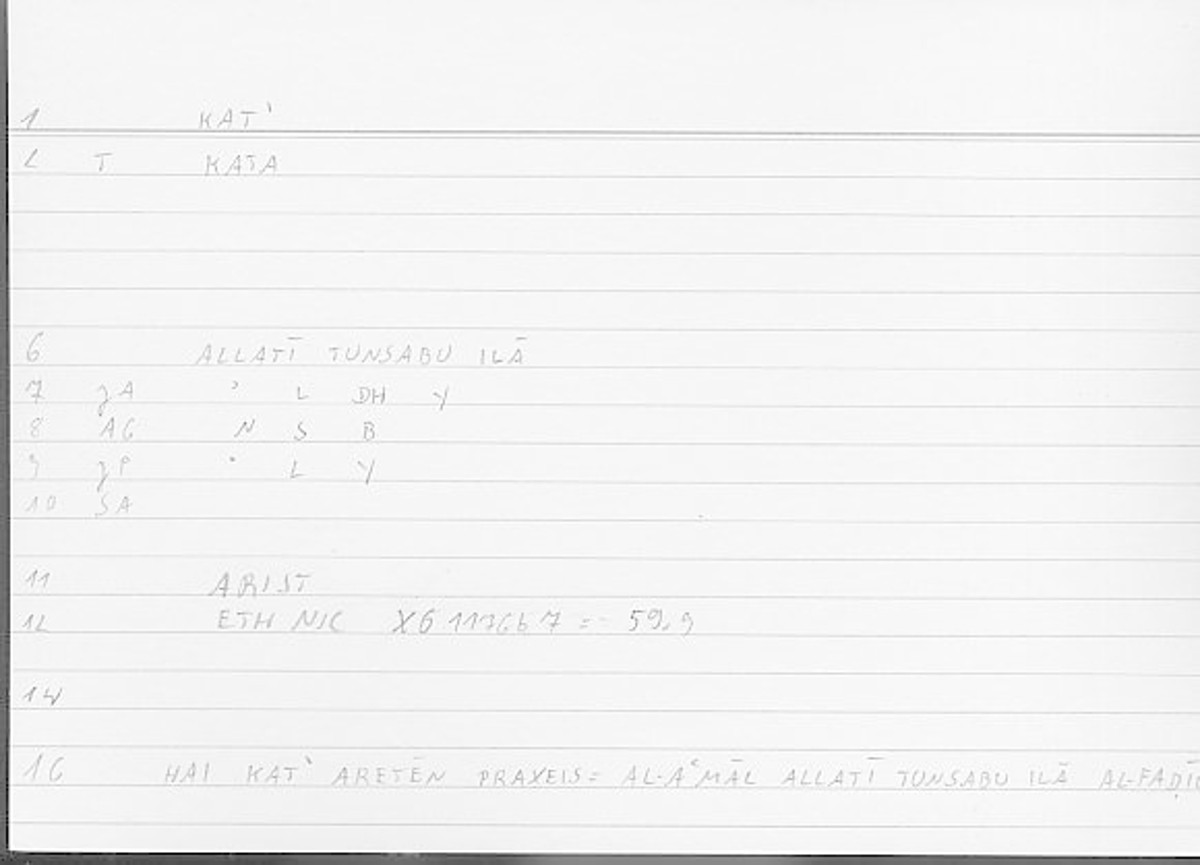 1 KAT`
2 T KATA
6 ALLATĪ TUNSABU ILĀ
7 ʒA ʾ L DH Y
8 AG N S B
9 ʒP ʾ L Y
10 SA
11 ARIST
12 ETH NIC X6 1176b7 = 59.9
14
16 HAI KAT` ARETĒN PRAXEIS = AL-AʿMĀL ALLATĪ TUNSABU ILĀ AL-FAḌĪ